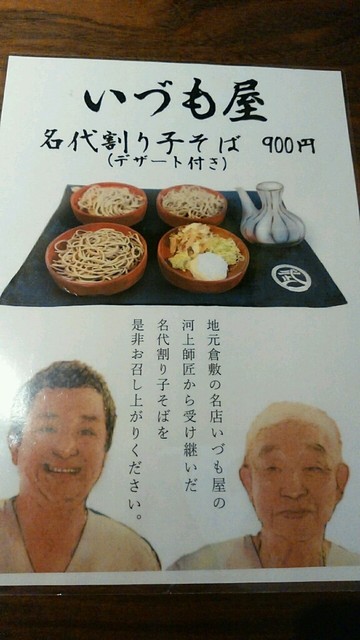 いづも屋
名代割り子そば 900円
(デザート付き)
武
地元倉敷の名店いづも屋の
河上師匠から受け継いだ
名代割り子そばを
是非お召し上がりください。